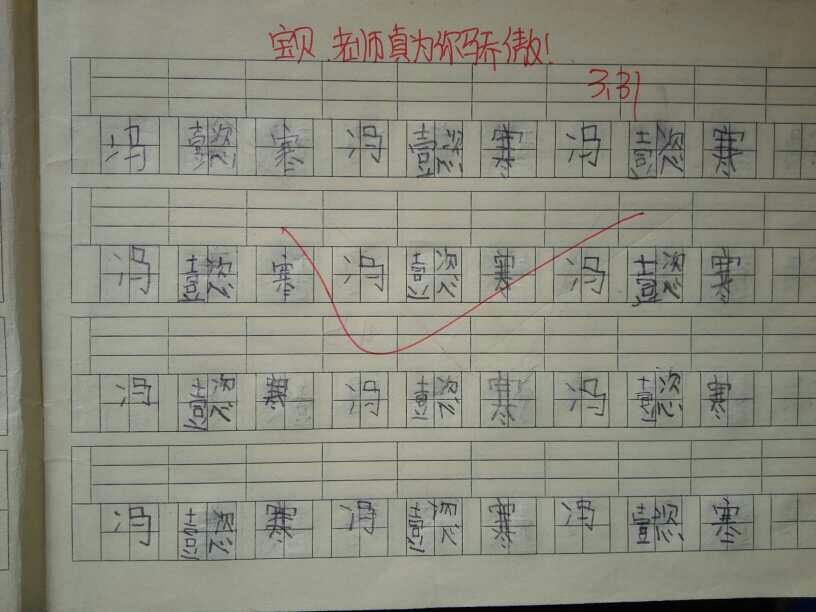 宝贝,老师真为你骄傲!
3.31
冯 懿 寒 冯 懿 寒 冯 懿 寒
冯 懿 寒 冯 懿 寒 冯 懿 寒
冯 懿 寒 冯 懿 寒 冯 懿 寒
冯 懿 寒 冯 懿 寒 冯 懿 寒